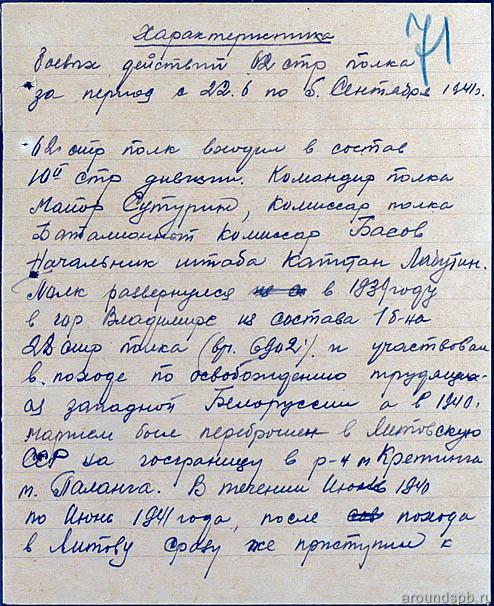 71
Характеристика
боевых действий 62 стр полка
за период с 22.6 по 5. Сентября 1941г.
62 стр полк входил в состав
10й стр дивизии. Командир полка
Майор Сутурин, Комиссар полка
Баталионный комиссар Басов
Начальник штаба Капитан Лабутин.
Полк развернулся в 1939 году
в гор Владимире из состава 1 б-на
22 стр полка и участвовал
в походе по освобождению трудящих-
ся западной Белоруссии а в 1940г.
маршем был переброшен в Литовскую
ССР на госграницу в р-н м Кретинга
м. Паланга. В течении Июнь 1940
по Июнь 1941 года, после похода
в Литову сразу же приступил к
aroundspb.ru